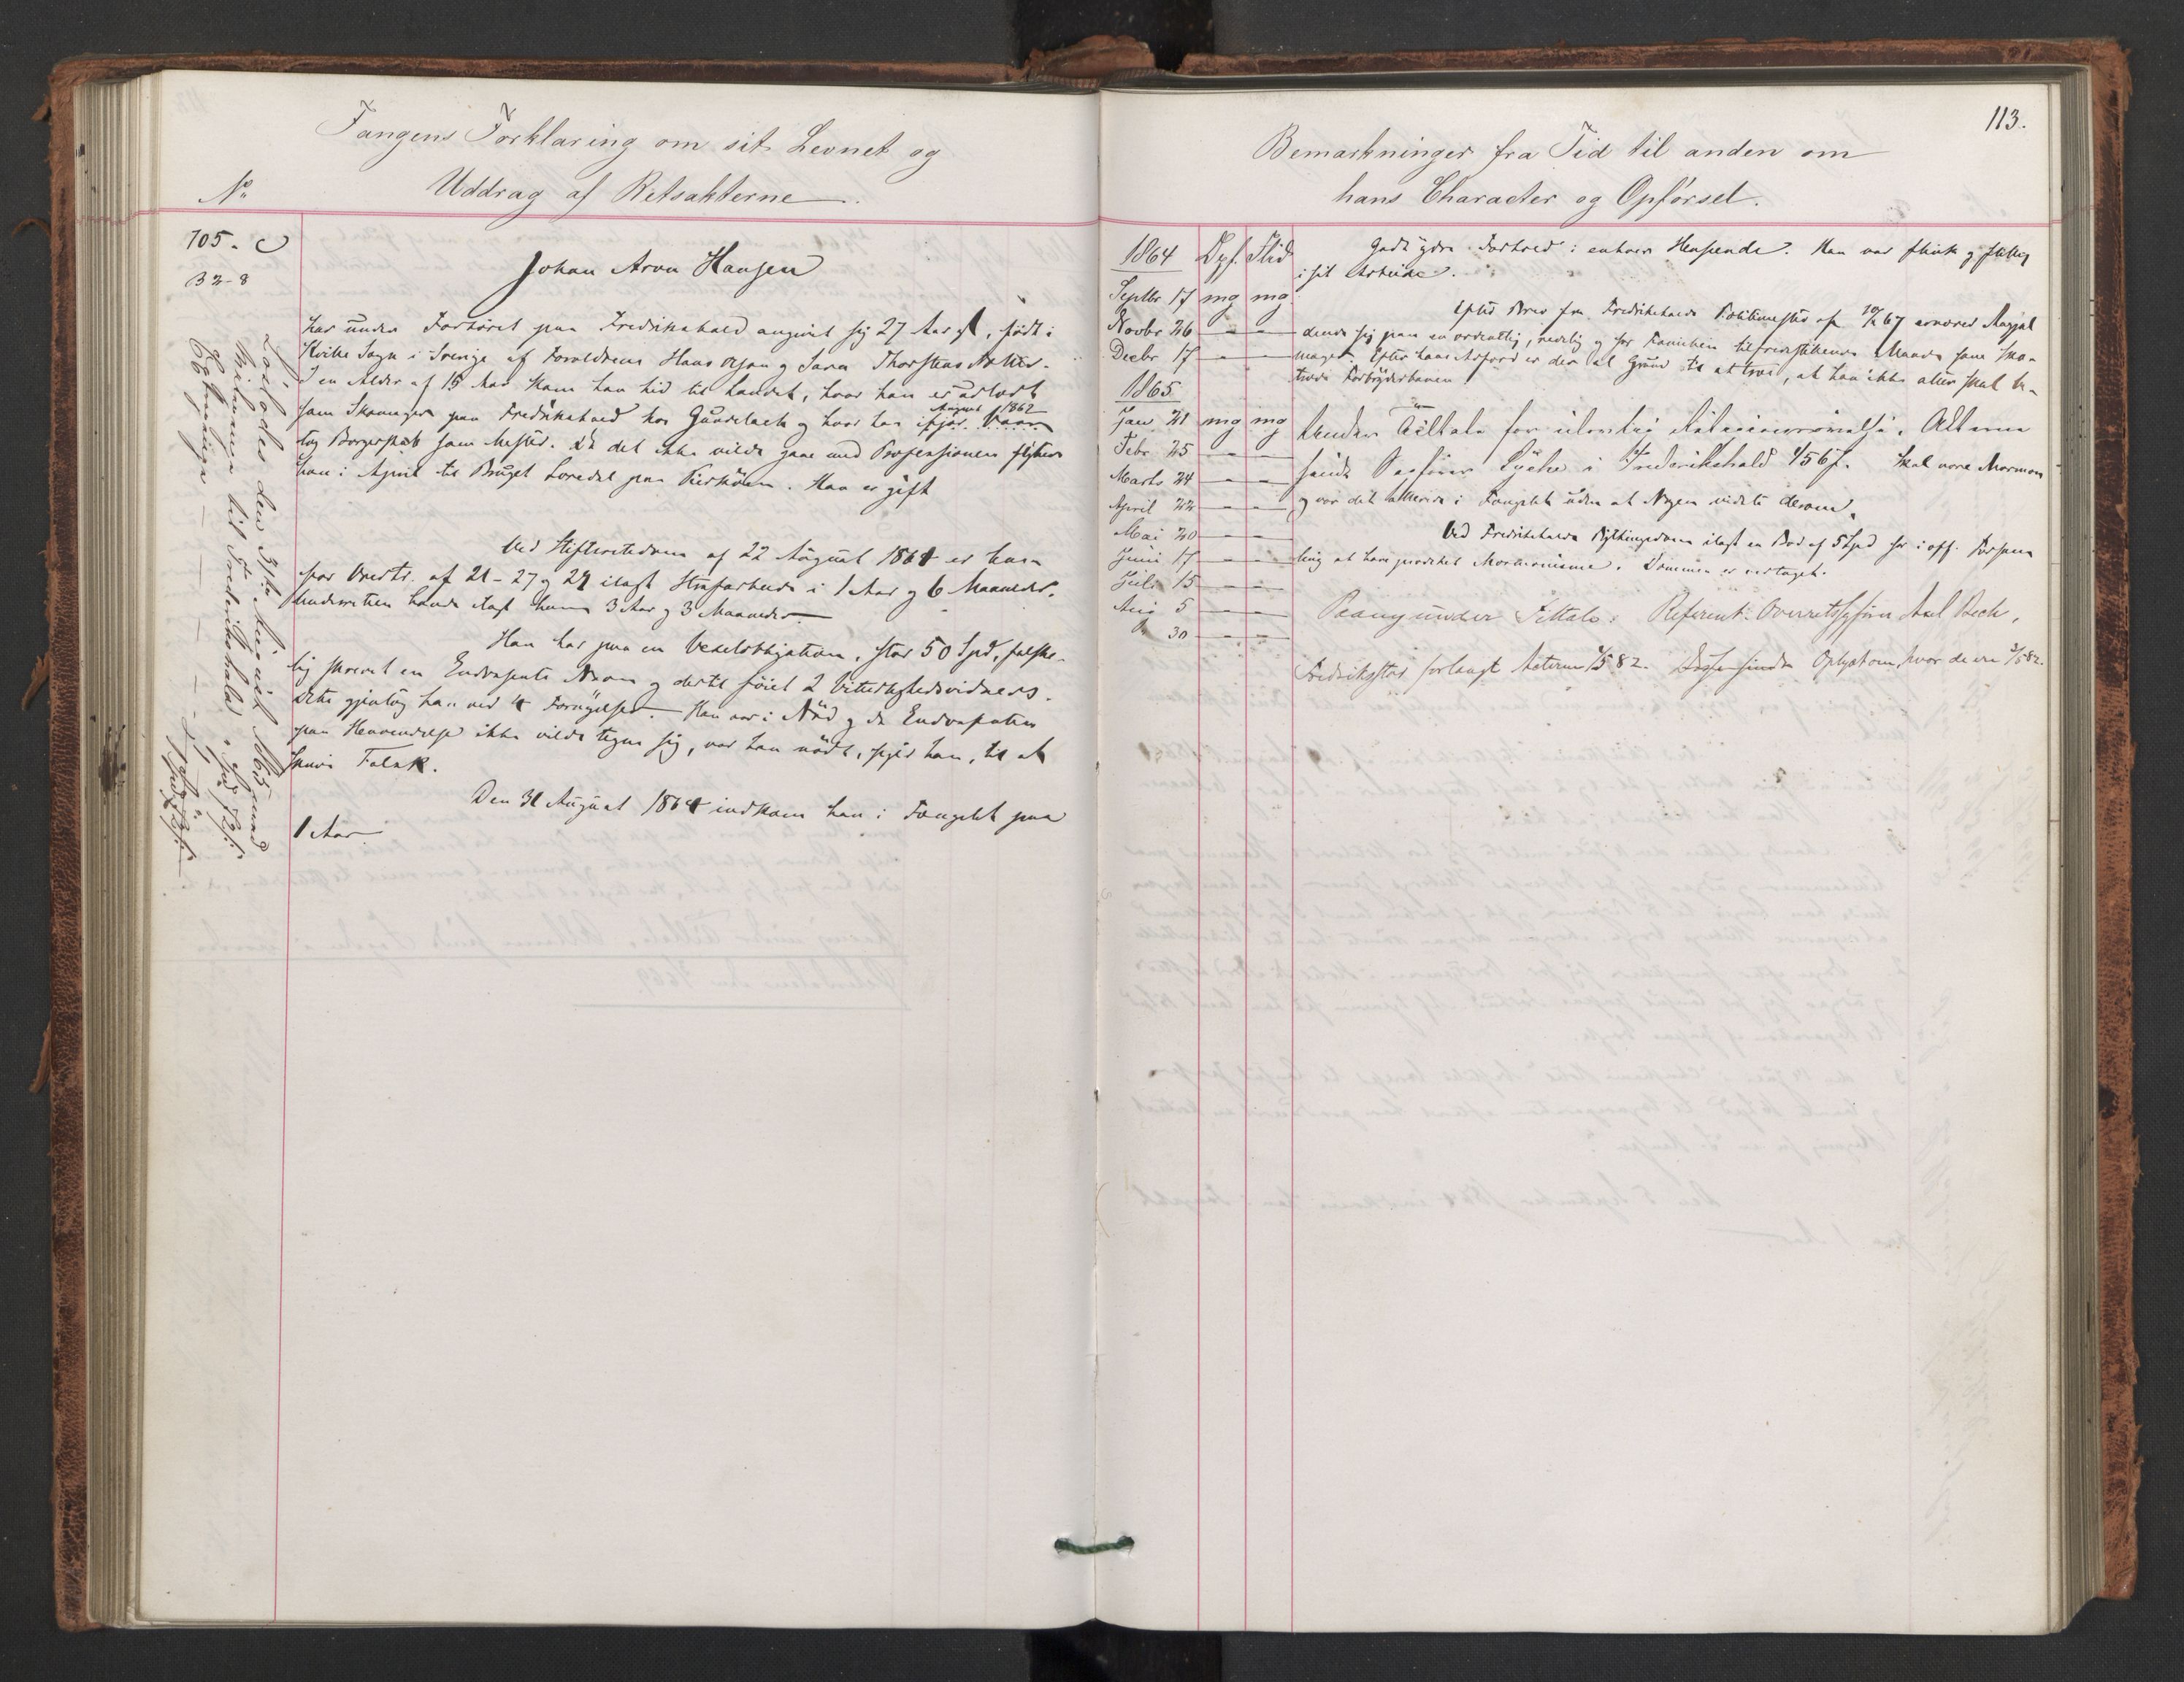 Fangens Forklaring om sit Levnet og
No. Uddrag af Retsakterne.
705. C
B 2-8
Johan Aron Hansen
har under Forhøret paa Fredrikshald angivet sig 27 Aar gl, født i
Sogn i Sverige af Forældrene Hans Olsen og Sara Thorstens Datter.
I en Alder af 15 Aar kom han hid til Landet, hvor han er udlært
som Skomager paa Fredrikshald hos Gundelach og hvor han ifjor
August 1862
tog Borgerskab som Mester. Da det ikke vilde gaae med Professionen flyttede
han i April til Bruget Loredal paa . Han er gift
Ved Stiftsretsdom af 22 August 1864 er han
for Overtr. af 21-27 og 29 ilagt Strafarbeide i 1 Aar og 6 Maaneder.
Underretten havde ilagt ham 3 Aar og 3 Maaneder.
Han har paa en Vexelobligation, stor 50 Spd, falske-
lig skrevet en Endossents Navn og dertil føiet 2 Vitterlighedsvidners.
Dette gjentog han ved 4 Fornyelser. Han var i Nød og da Endossenten
paa Henvendelse ikke vilde tegne sig, var han nødt, siger han, til at
skrive Falsk.
Den 31 August 1864 indkom han i Fængslet paa
1 Aar
Løslades den 31te August 1865
til Fredrikshald
113.
Bemærkninger fra Tid til anden om
hans Character og Opførsel.
1864 Opf. Flid
Septbr 17 mg mg
Novbr 26 - -
Decbr 17 - -
1865
Jan 21 mg mg
Febr 25 - -
Marts 24 - -
April 22 - -
Mai 20 - -
Juni 17 - -
Juli 15 - -
Aug 5 - -
" 30 - -
Godt Forhold i enhver Henseende. Han var flink og flittig
i sit Arbeide.
Efter Brev fra Fredrikshalds Politimester af 67 ernærer Angjæl
dende sig paa en ordentlig, redelig og for Familien tilfredsstillende Maade som Sko-
mager. Efter hans Adfærd er der al Grund til at troe, at han ikke atter skal be-
træde Forbryderbanen
Under Tiltale for ulovlig Religionsøvelse. Akterne
sendt Sagfører Lyche i Frederikshald 67. Skal være Mormon
og var det allerede i Fængslet uden at Nogen vidste derom.
Ved Fredrikshalds Bythingsdom ilagt en Bod af 5 Spd for i off. Forsam
ling at have prædiket Mormonisme. Dommen er vedtaget.
Paany under Tiltale. Referent: Overretssagfører Axel Bech,
Fredriksstad forlangt Acterne 82. Disse sendt Oplyst om, hvor de ere 82.